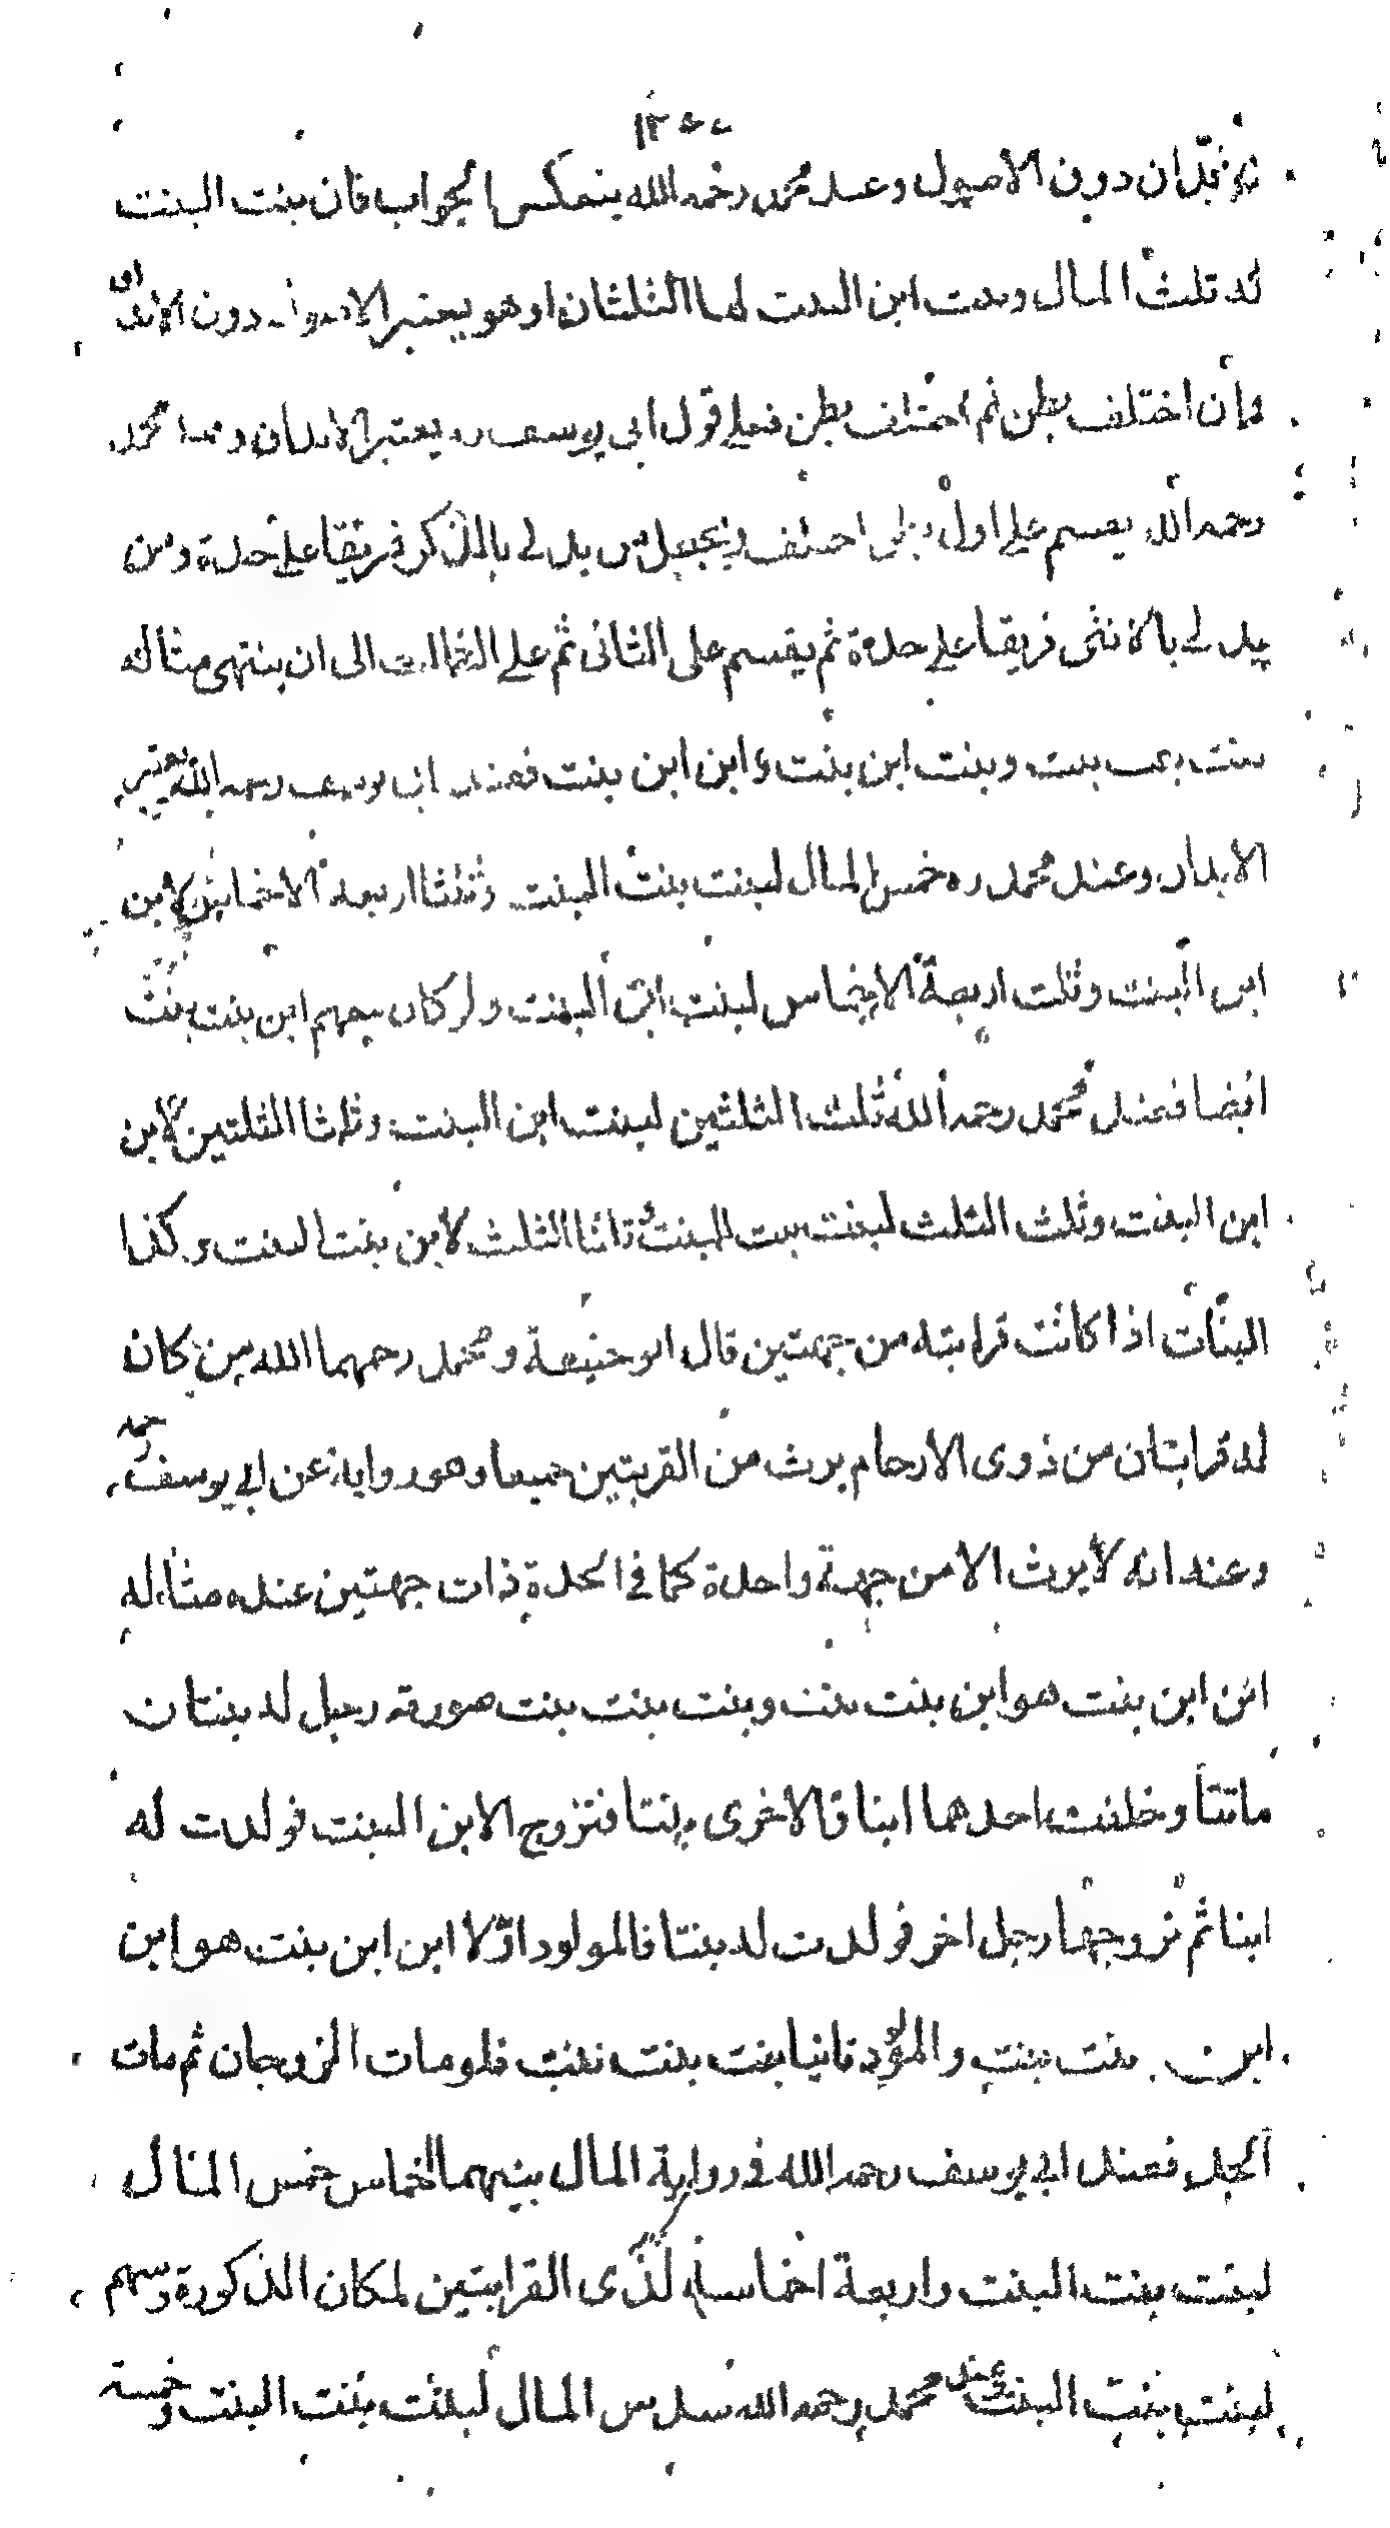 الابدان دون الاصول وعند محمد رحمه الله ينعكس الجواب فان بنت البنت
له ثلث المال وبنت ابن البنت لها الثلثان اذ هو يعتبر الاصول دون الابدان
وان اختلف بطن ثم اختلف بطن فعلى قول ابي يوسف ره يعتبر الابدان وعند محمد
رحمه الله يقسم على اول بطن اختلف ويجعل من يدلي بالذكر فريقا على حدة ومن
يدلي بالانثى فريقا على حدة ثم يقسم على الثاني ثم على الثالث الى ان ينتهى مثاله
بنت بنت بنت وبنت ابن بنت وابن ابن بنت فعند ابي يوسف رحمه الله يعتبر
الابدان وعند محمد ره خمس المال لبنت بنت البنت وثلثا اربعة الاخماس لابن
ابن البنت وثلث اربعة الاخماس لبنت ابن البنت ولو كان معهم ابن بنت بنت
ايضا فعند محمد رحمه الله ثلث الثلثين لبنت ابن البنت وثلثا الثلثين لابن
ابن البنت وثلث الثلث لبنت بنت البنت وثلثا الثلث لابن بنت البنت وكذا
البنات اذا كانت قرابته من جهتين قال ابو حنيفة ومحمد رحمهما الله من كان
له قرابتان من ذوى الارحام يرث من القربتين جميعا وهو رواية عن ابي يوسف رحمه
وعند انه لا يرث الا من جهة واحدة كما في الجدة ذات جهتين عنده مثاله
ابن ابن بنت هو ابن بنت بنت وبنت بنت بنت صورته رجل له بنتان
ماتتا وخلفت احدهما ابنا والاخرى بنتا فتزوج الابن البنت فولدت له
ابنا ثم تزوجها رجل اخر فولدت له بنتا فالمولود اولا ابن ابن بنت هو ابن
ابن بنت بنت والمولود ثانيا بنت بنت بنت فلومات الزوجان ثم مات
الجد فعند ابي يوسف رحمه الله في رواية المال بينهما اخماس خمس المال
لبنت بنت البنت واربعة اخماسه لذى القرابتين لمكان الذكورة وسهم
لبنت بنت البنت عند محمد رحمه الله سدس المال لبنت بنت البنت وخمسة